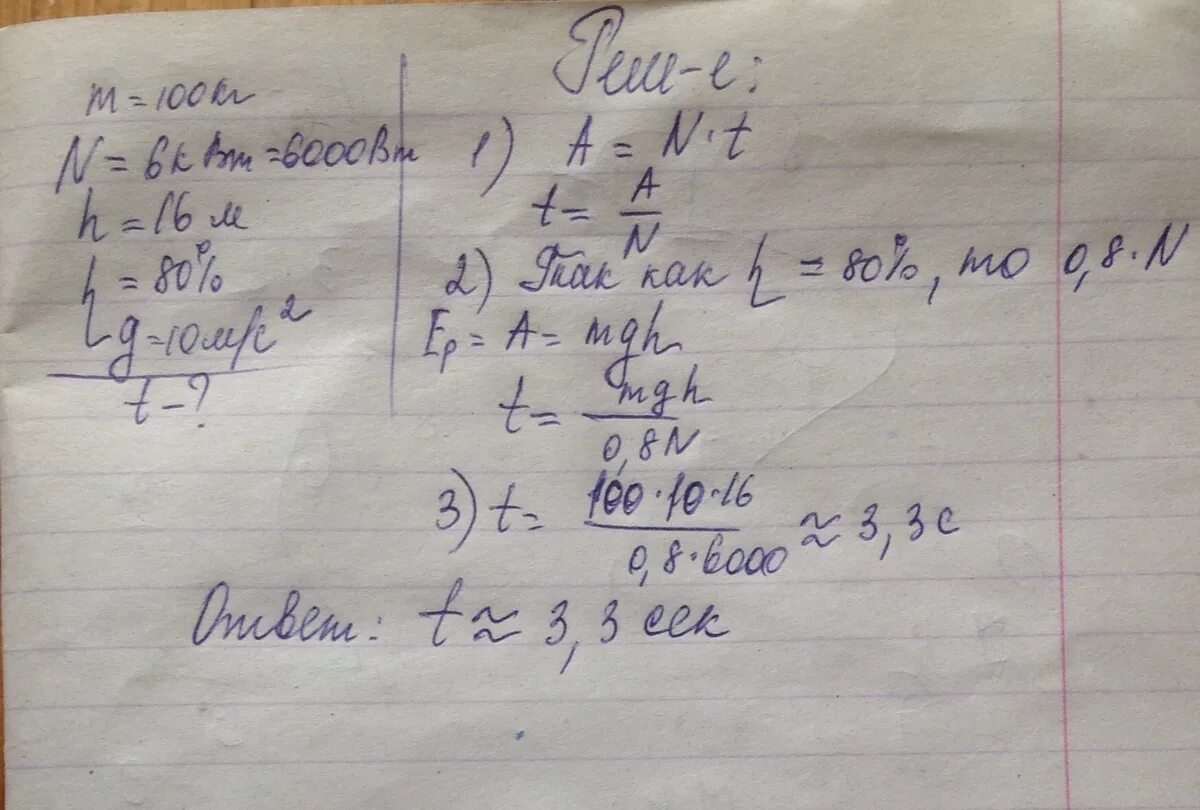 m = 100кг
N = 6кВт = 6000Вт
h = 16 м
η = 80%
g = 10м/с²
t - ?
Реш-е:
1) A = N · t
t = A/N
2) Так как η = 80%, то 0,8 · N
Eр = A = mgh
t = mgh/0,8N
3) t = 100 · 10 · 16/0,8 · 6000 ≈ 3,3с
Ответ: t ≈ 3,3 сек